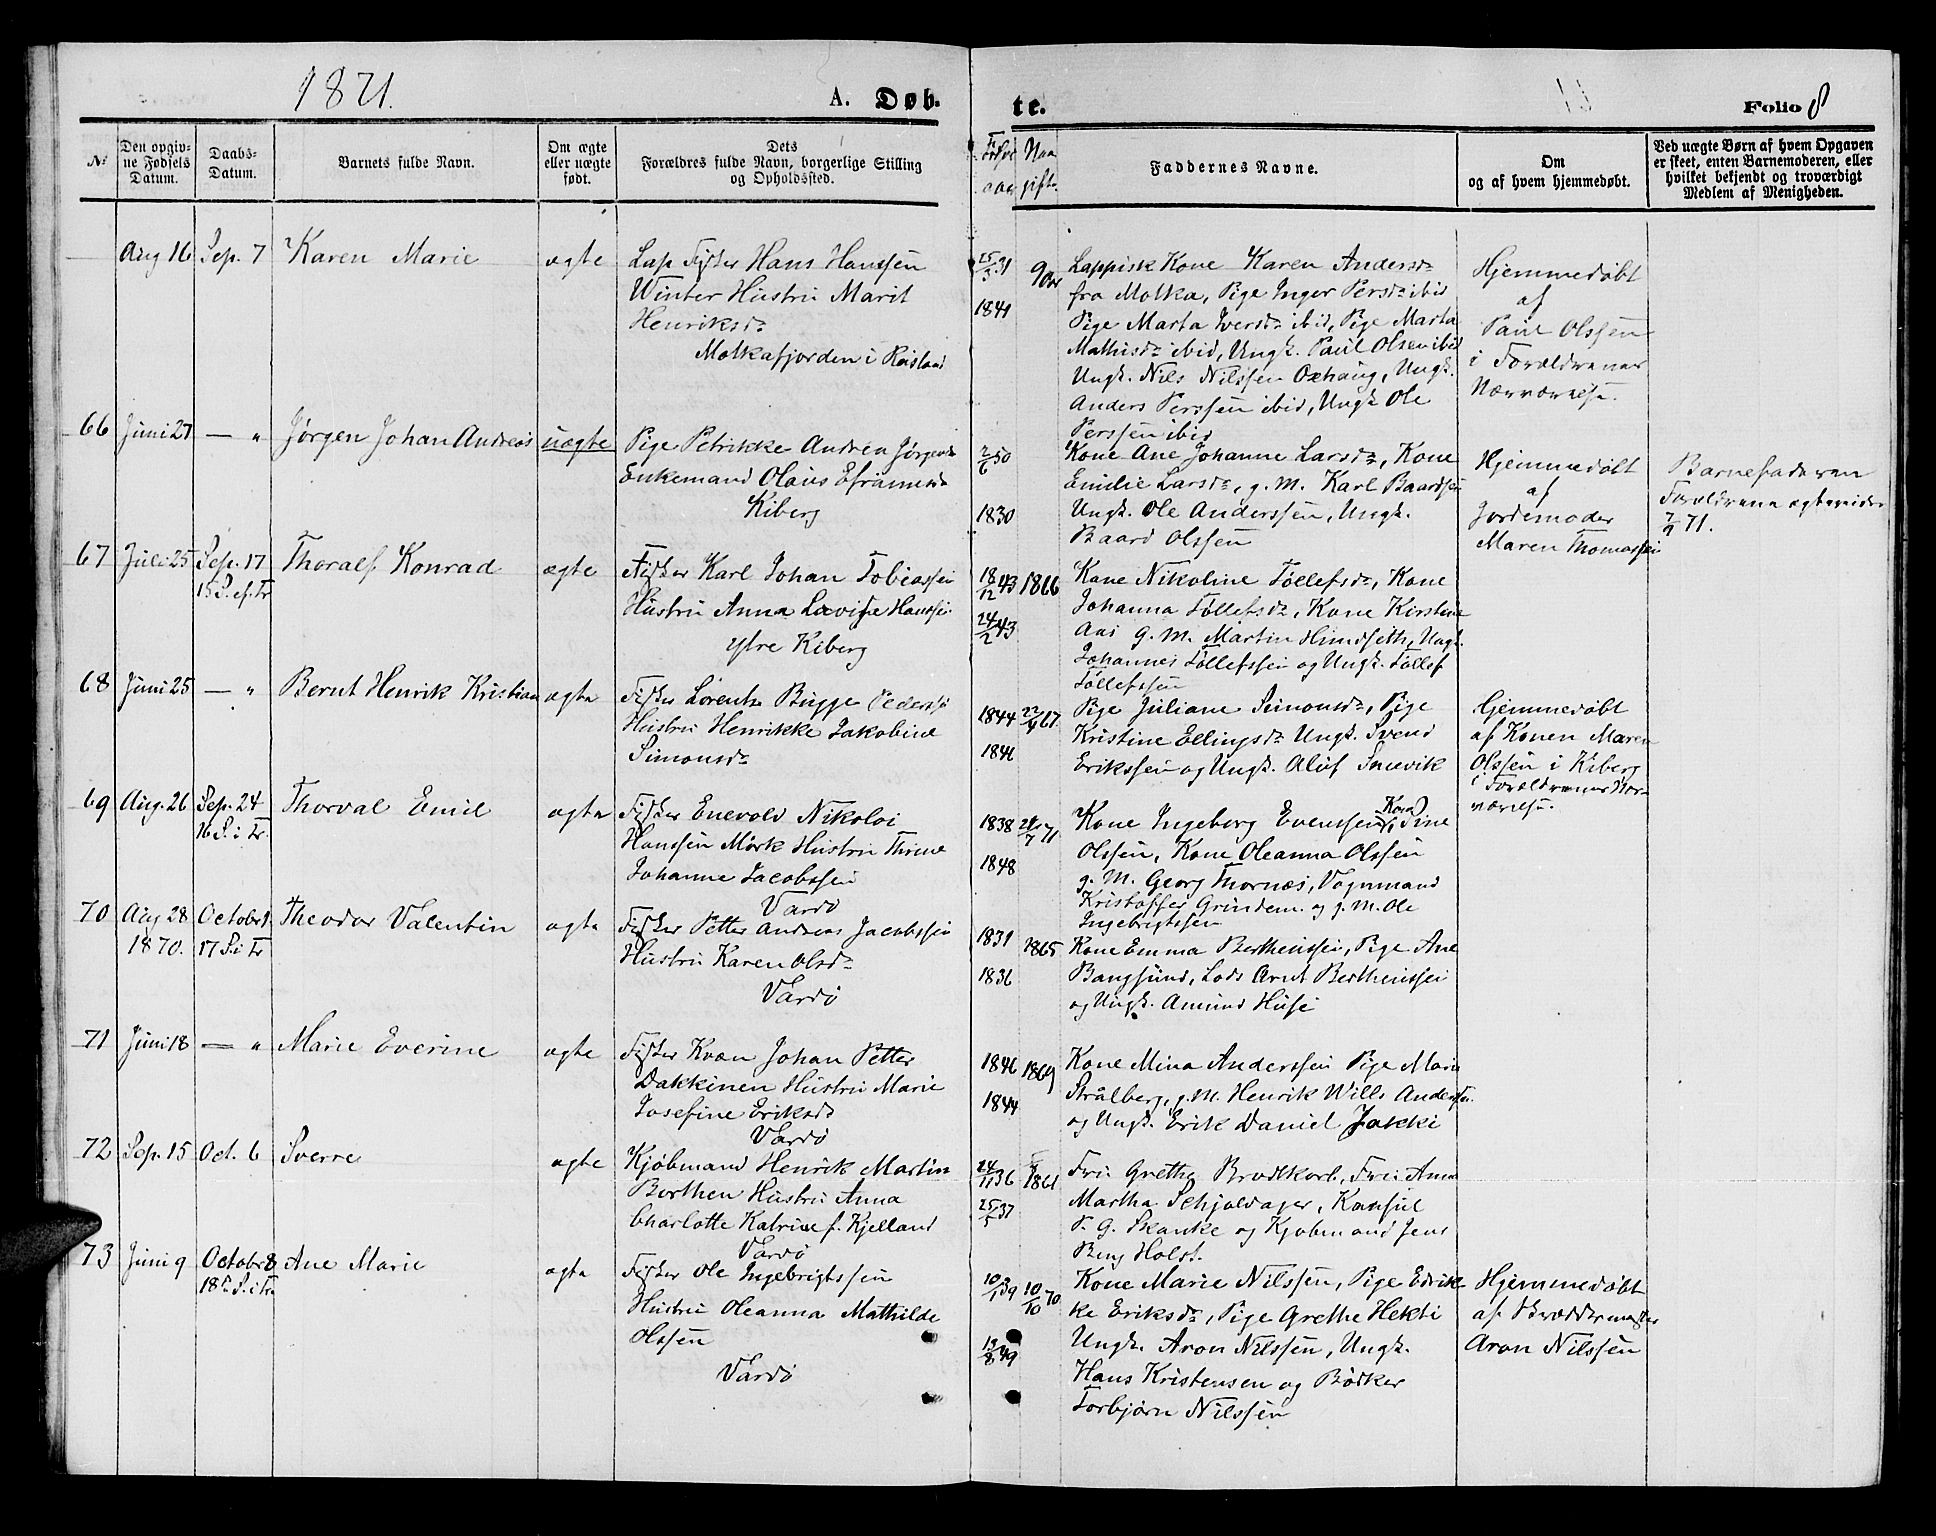 1871.
A. Døb-
te.
Folio 8
№
Den opgiv-
ne Fødsels
Datum.
Daabs-
Datum.
Barnets fulde Navn.
Om ægte
eller uægte
født.
Dets
Forældres fulde Navn, borgerlige Stilling
og Opholdssted.
Faddernes Navne.
Om
og af hvem hjemmedøbt.
Ved uægte Børn af hvem Opgaven
er skeet, enten Barnemoderen, eller
hvilket bekjendt og troværdigt
Medlem af Menigheden.
Aug 16
Sep. 7
Karen Marie
ægte
Lap Fisker Hans Hanssen
Winter Hustru Marit
Henriksdr
Molkafjorden i
25/3 31
1841
9 Aar
Lappisk Kone Karen Andersdr
fra Molka, Pige Inger Persdr ibid
Pige Marta Iversdr ibid, Pige Marta
Mathisdr ibid, Ungk. Paul Olsen ibid
Ungk. Nils Nilssen Oxhaug, Ungk.
Anders Perssen ibid, Ungk Ole
Perssen ibid
Hjemmedøbt
af
Paul Olssen
i Forældrenes
Nærværelse.
66
Juni 27
— "
Jørgen Johan Andreas
uægte
Pige Petrikke Andrea Jørgensdr
Enkemand Olaus
Kiberg
2/6 50
1830
Kone Ane Johanne Larsdr, Kone
Emilie Larsdr, g. M. Karl Baardsen
Ungk. Ole Anderssen, Ungk.
Baard Olssen
Hjemmedøbt
af
Jordemoder
Maren Thomassen
Barnefaderen
Forældrene ægteviede
7/9 71.
67
Juli 25
Sep. 17
15 S. ef. Tr
Thoralf Konrad
ægte
Fisker Karl Johan Tobiassen
Hustru Anna Lovise Hanssen
ytre Kiberg
18/12 43
24/2 43
1866
Kone Nikoline Tollefsdr, Kone
Johanna Tollefsdr, Kone Kirstine
Aas g. M. Martin Hindseth, Ungk.
Johannes Tollefssen og Ungk. Tollef
Tollefssen
68
Juni 25
— "
Bernt Henrik Kristian
ægte
Fisker Lorents Bugge Pederssen
Hustru Henrikke Jakobine
Simonsdr
1844
1841
22/9 67.
Pige Juliane Simonsdr, Pige
Kristine Ellingsdr Ungk. Svend
Erikssen og Ungk. Aluf Snevik
Hjemmedøbt
af Konen Maren
Olssen i Kiberg
i Forældrenes Nær-
værelse.
69
Aug. 26
Sep. 24
16 S. i Tr.
Thorval Emil
ægte
Fisker Enevold Nikolai
Hanssen Mørk Hustru Thrine
Johanne Jacobssen
Vardø
1838
1848
7 71
Kone Ingeborg Evenssen, Kone Sine
Olssen, Kone Oleanna Olssen
g. M. Georg Thornæs, Vognmand
Kristoffer Grindem. og g. M. Ole
Ingebrigtssen
70
Aug 28
1870.
Octobr 1
17 S. i Tr
Theodor Valentin
ægte
Fisker Petter Andreas Jacobssen
Hustru Karen Olsdr
Vardø
1831
1836
1865
Kone Emma Berthenssen, Pige Ane
Bangsund, Lods Arnt Berthenssen
og Ungk. Amund Huse
71
Juni 18
— "
Marie Everine
ægte
Fisker Kvæn Johan Petter
Dakkinen Hustru Marie
Josefine Eriksdr
Vardø
1846
1844
1869
Kone Mina Anderssen Pige Marie
Strålberg, g. M. Henrik Wills Anderssen
og Ungk. Erik Daniel Jakki
72
Sep. 15
Oct. 6
Sverre
ægte
Kjøbmand Henrik Martin
Borthen Hustru Anna
Charlotte Katrine f. Kjelland
Vardø
24/11 36
25/5 37
1861
Fru Grethe Brodtkorb, Fru Anna
Martha Schjeldager, Konsul
P. G. Skanke og Kjøbmand Jens
Beng Holst.
73
Juni 9
Octobr 8
18de S. i Tr.
Ane Marie
ægte
Fisker Ole Ingebrigtssen
Hustru Oleanna Mathilde
Olssen
Vardø
10/1 39
13/8 49
10/10 70
Kone Marie Nilssen, Pige Edrik-
ke Eriksdr, Pige Grethe Hekti
Ungk. Aron Nilssen, Ungk.
Hans Kristensen og Bødker
Torbjørn Nilssen
Hjemmedøbt
af
Aron Nilssen